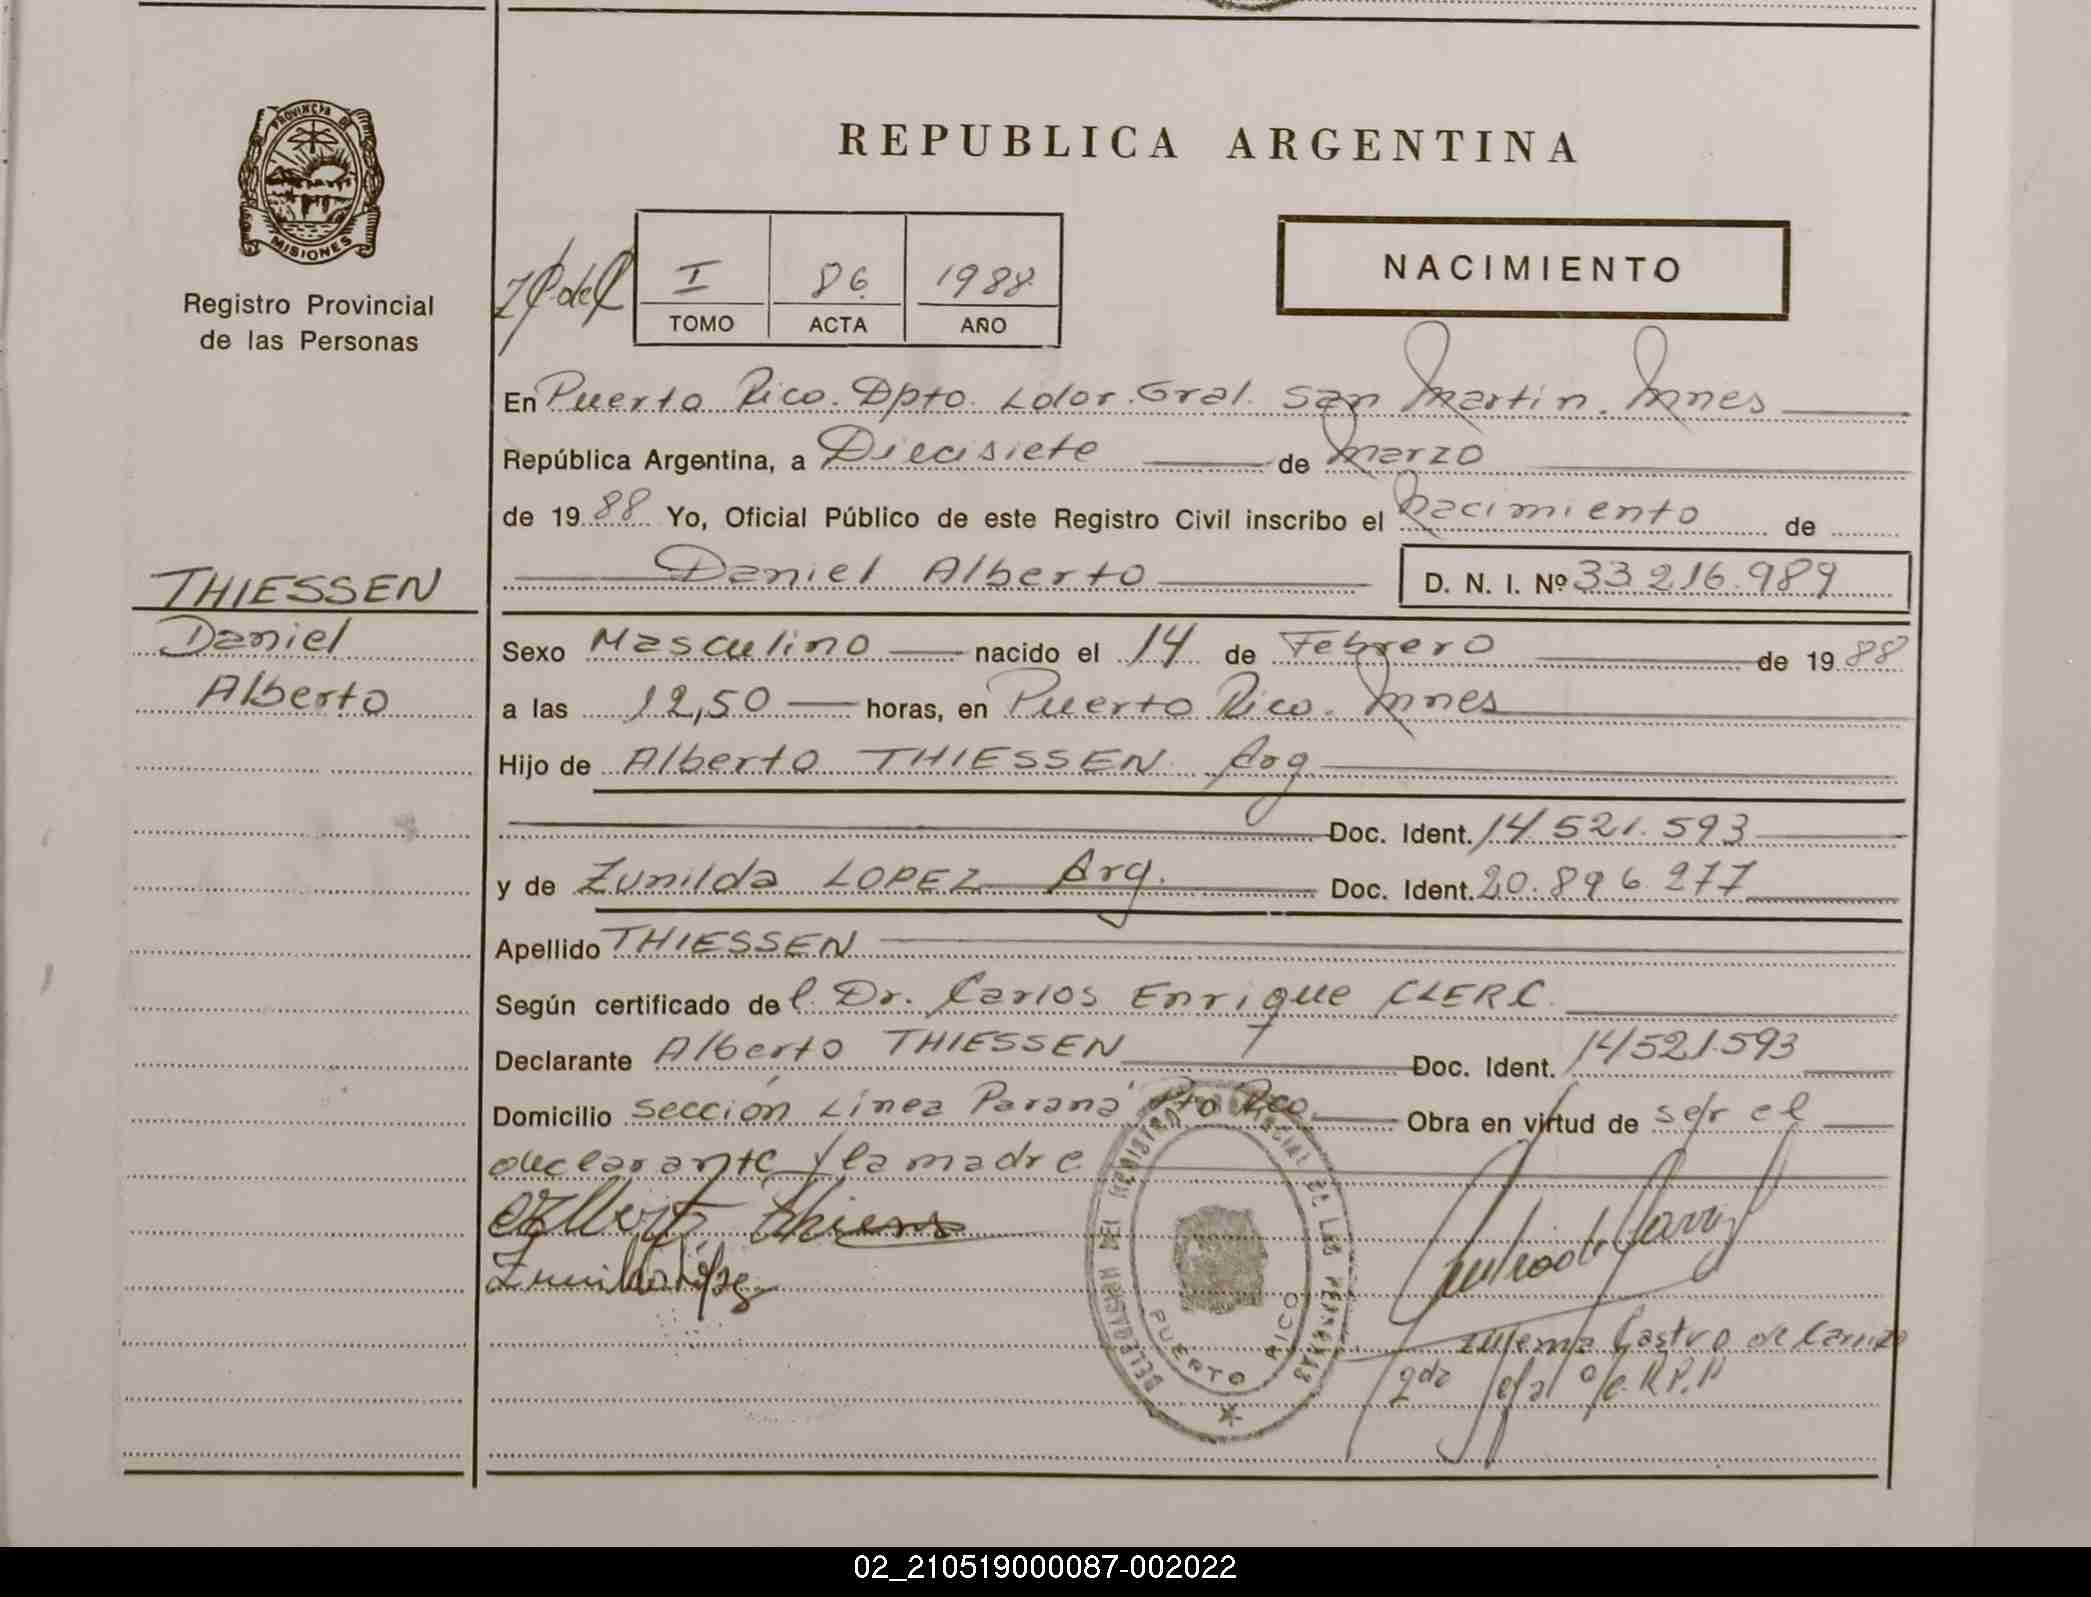 PROVINCIA DE
MISIONES
Registro Provincial
de las Personas
REPUBLICA ARGENTINA
NACIMIENTO
I 86 1988
TOMO ACTA AÑO
En Puerto Rico. Dpto. Ldor. Gral. San Martin. Mnes
República Argentina, a Diecisiete de Marzo
de 1988 Yo, Oficial Público de este Registro Civil inscribo el Nacimiento de
Daniel Alberto D. N. I. Nº 33.216.989
THIESSEN
Daniel
Alberto
Sexo Masculino nacido el 14 de Febrero de 1988
a las 12,50 horas, en Puerto Rico. Mnes
Hijo de Alberto THIESSEN Arg
Doc. Ident. 14.521.593
y de Zunilda LOPEZ Arg. Doc. Ident. 20.896.277
Apellido THIESSEN
Según certificado del Dr. Carlos Enrique CLERC.
Declarante Alberto THIESSEN Doc. Ident. 14521.593
Domicilio sección Línea Paraná Pto Rco Obra en virtud de ser el
declarante y la madre
Alberto Thiessen
Zunilda López
DELEGACION DEL REGISTRO PROVINCIAL DE LAS PERSONAS
PUERTO RICO
Zulema Castro de
2da
02_210519000087-002022